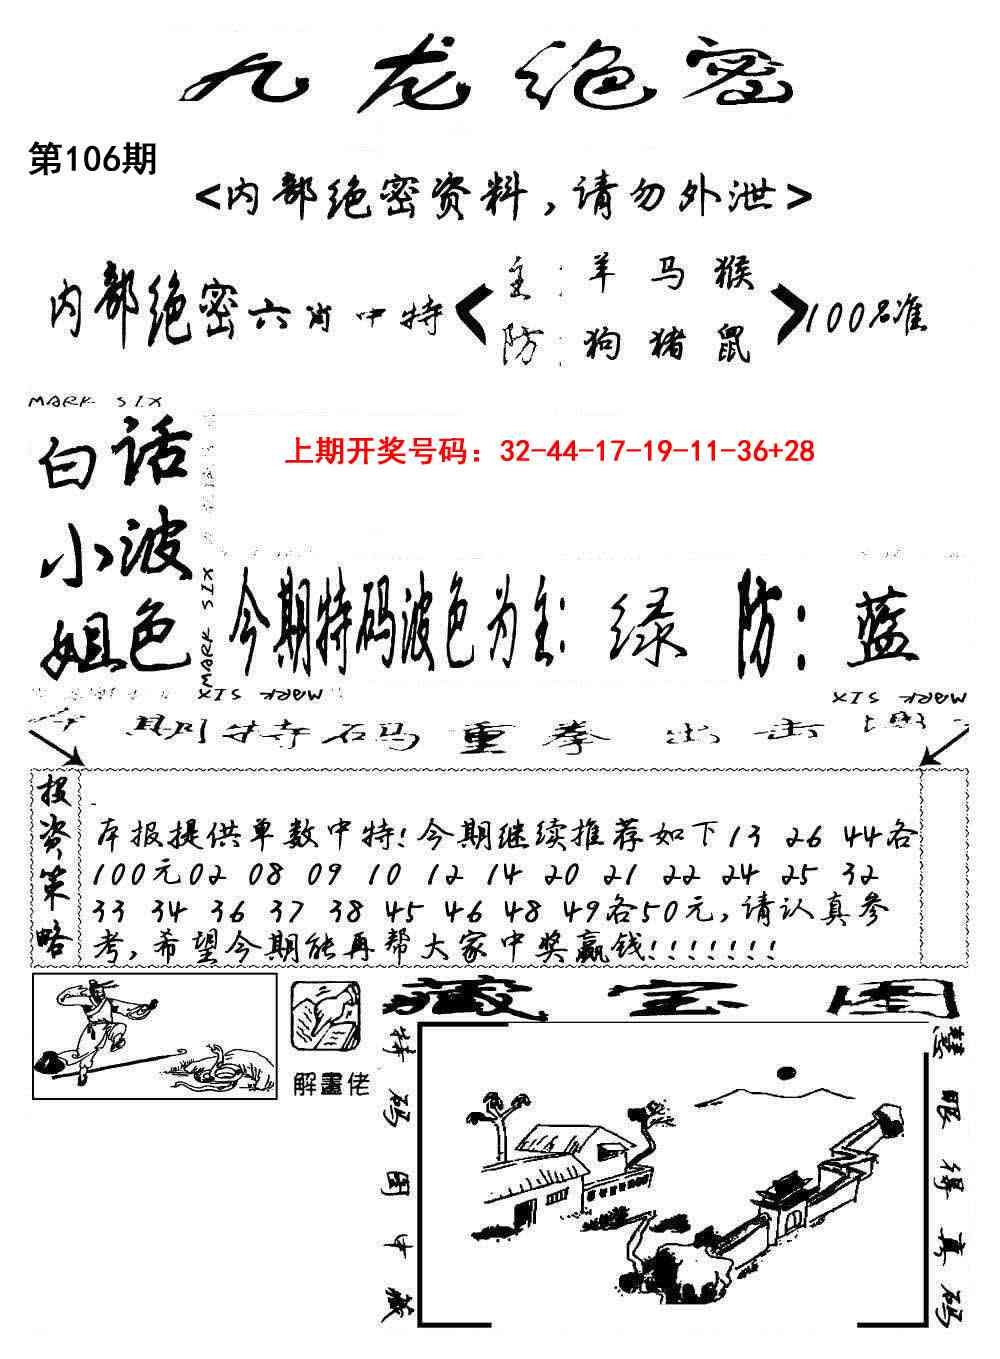 九龙绝密
第106期
<内部绝密资料,请勿外泄>
内部绝密六肖中特
主:羊 马 猴
防:狗 猪 鼠
100%准
MARK SIX
白话
小波
姐色
上期开奖号码：32-44-17-19-11-36+28
MARK SIX
今期特码波色为主:绿 防:蓝
MARK SIX
MARK SIX
今期特码重拳出击
投资策略
本报提供单数中特!今期继续推荐如下13 26 44各
100元02 08 09 10 12 14 20 21 22 24 25 32
33 34 36 37 38 45 46 48 49各50元,请认真参
考,希望今期能再帮大家中奖赢钱!!!!!!!
解畫佬
藏宝图
特码图中藏
慧眼得真码